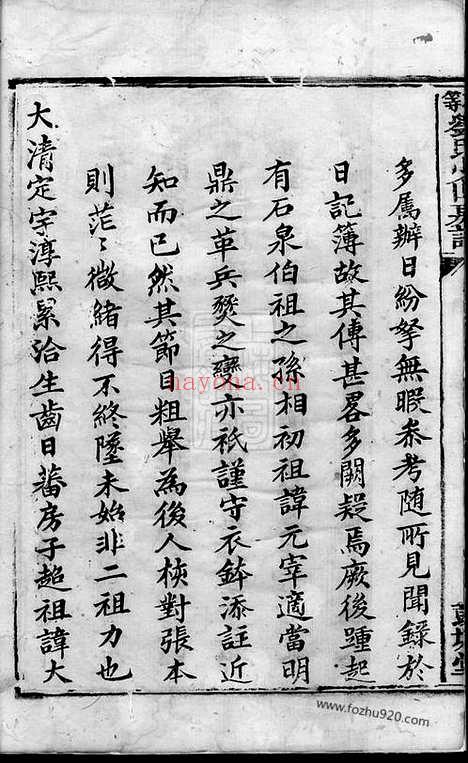 多属辦日紛拏無暇叅考随所見聞錄於
日記簿故其傳甚畧多闕疑焉厥後踵起
有石泉伯祖之孫相初祖諱元宰適當明
鼎之革兵燹之變亦祇謹守衣鉢添註近
知而已然其節目粗舉為後人挍對張本
則茫〻微緒得不終墜未始非二祖力也
大清定宇淳熙累洽生齒日蕃房子超祖諱大
hayona.cn
www.fozhu920.com